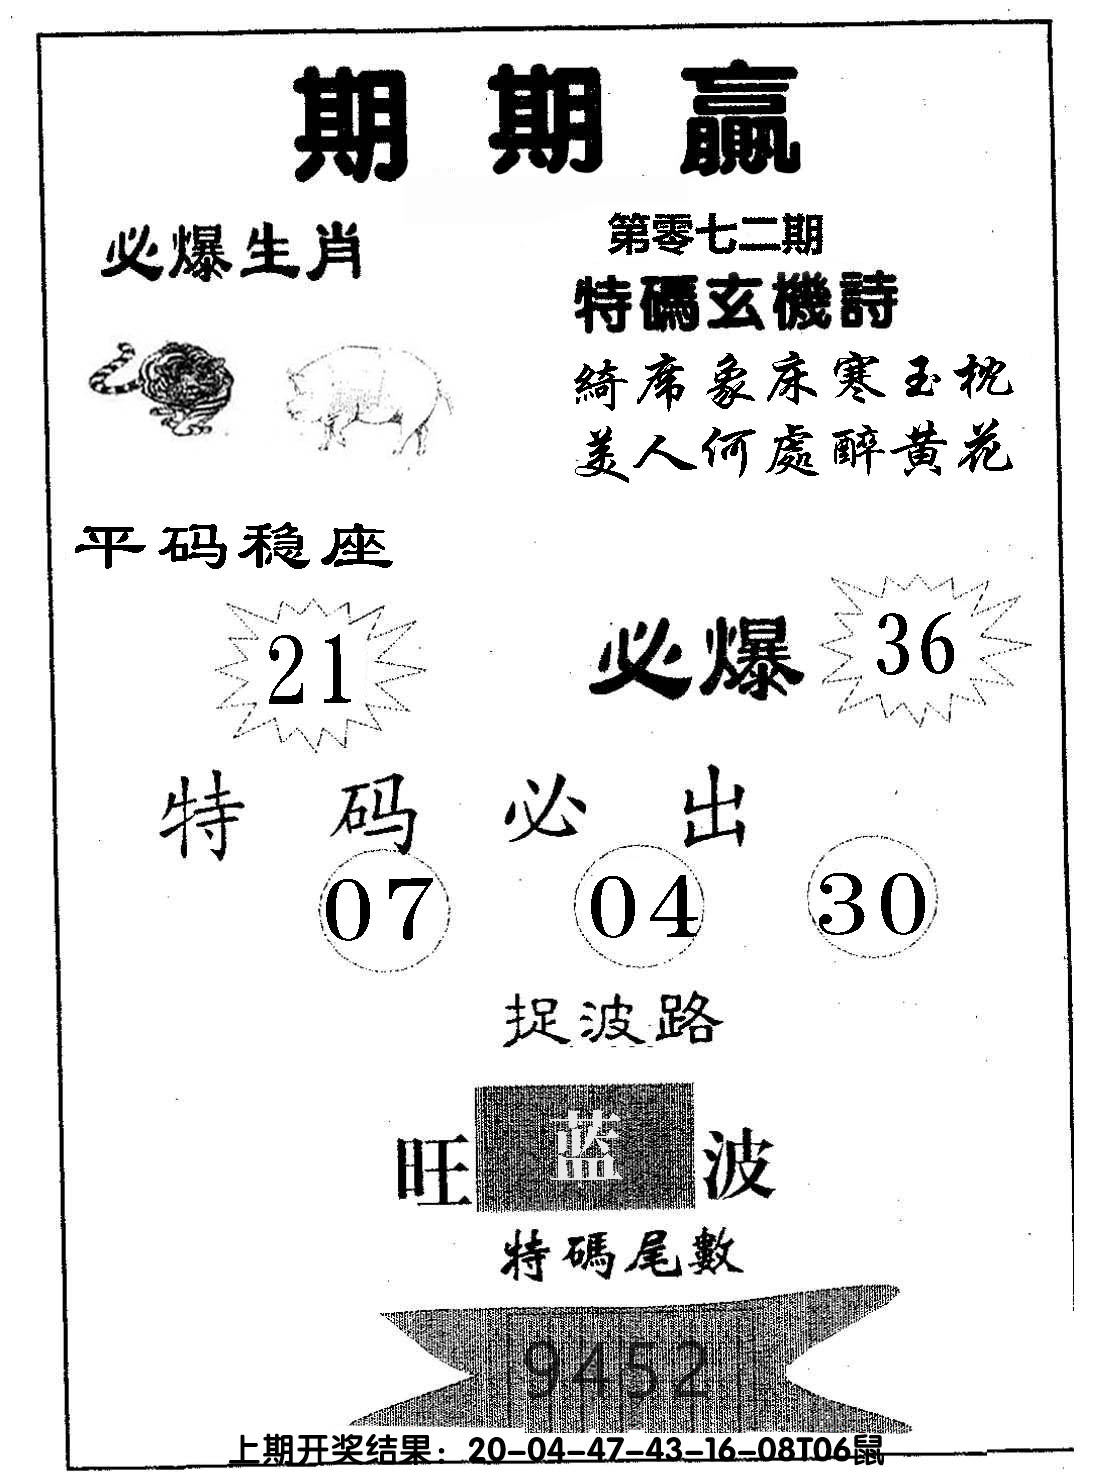 期期赢
必爆生肖
第零七二期
特碼玄機詩
綺席象床寒玉枕
美人何處醉黄花
平码稳座
21
必爆 36
特码必出
07 04 30
捉波路
旺蓝波
特碼尾數
9452
上期开奖结果：20-04-47-43-16-08T06鼠